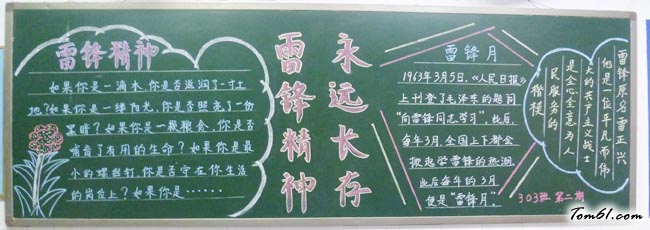 雷锋精神
如果你是一滴水,你是否滋润了一寸土
地?如果你是一缕阳光,你是否照亮了一份
黑暗?如果你是一颗粮食,你是否
哺育了有用的生命?如果你是最
小的螺丝钉,你是否守在你生活
的岗位上?如果你是……
永远长存
雷锋精神
雷锋月
1963年3月5日,《人民日报》
上刊登了毛泽东的题词
“向雷锋同志学习”,此后,
每年3月,全国上下都会
掀起学雷锋的热潮,
此后每年的3月
便是“雷锋月”。
雷锋原名雷正兴
他是一位平凡而伟
大的共产主义战士
是全心全意为人
民服务的
楷模
303班 第二期
Tom61.com